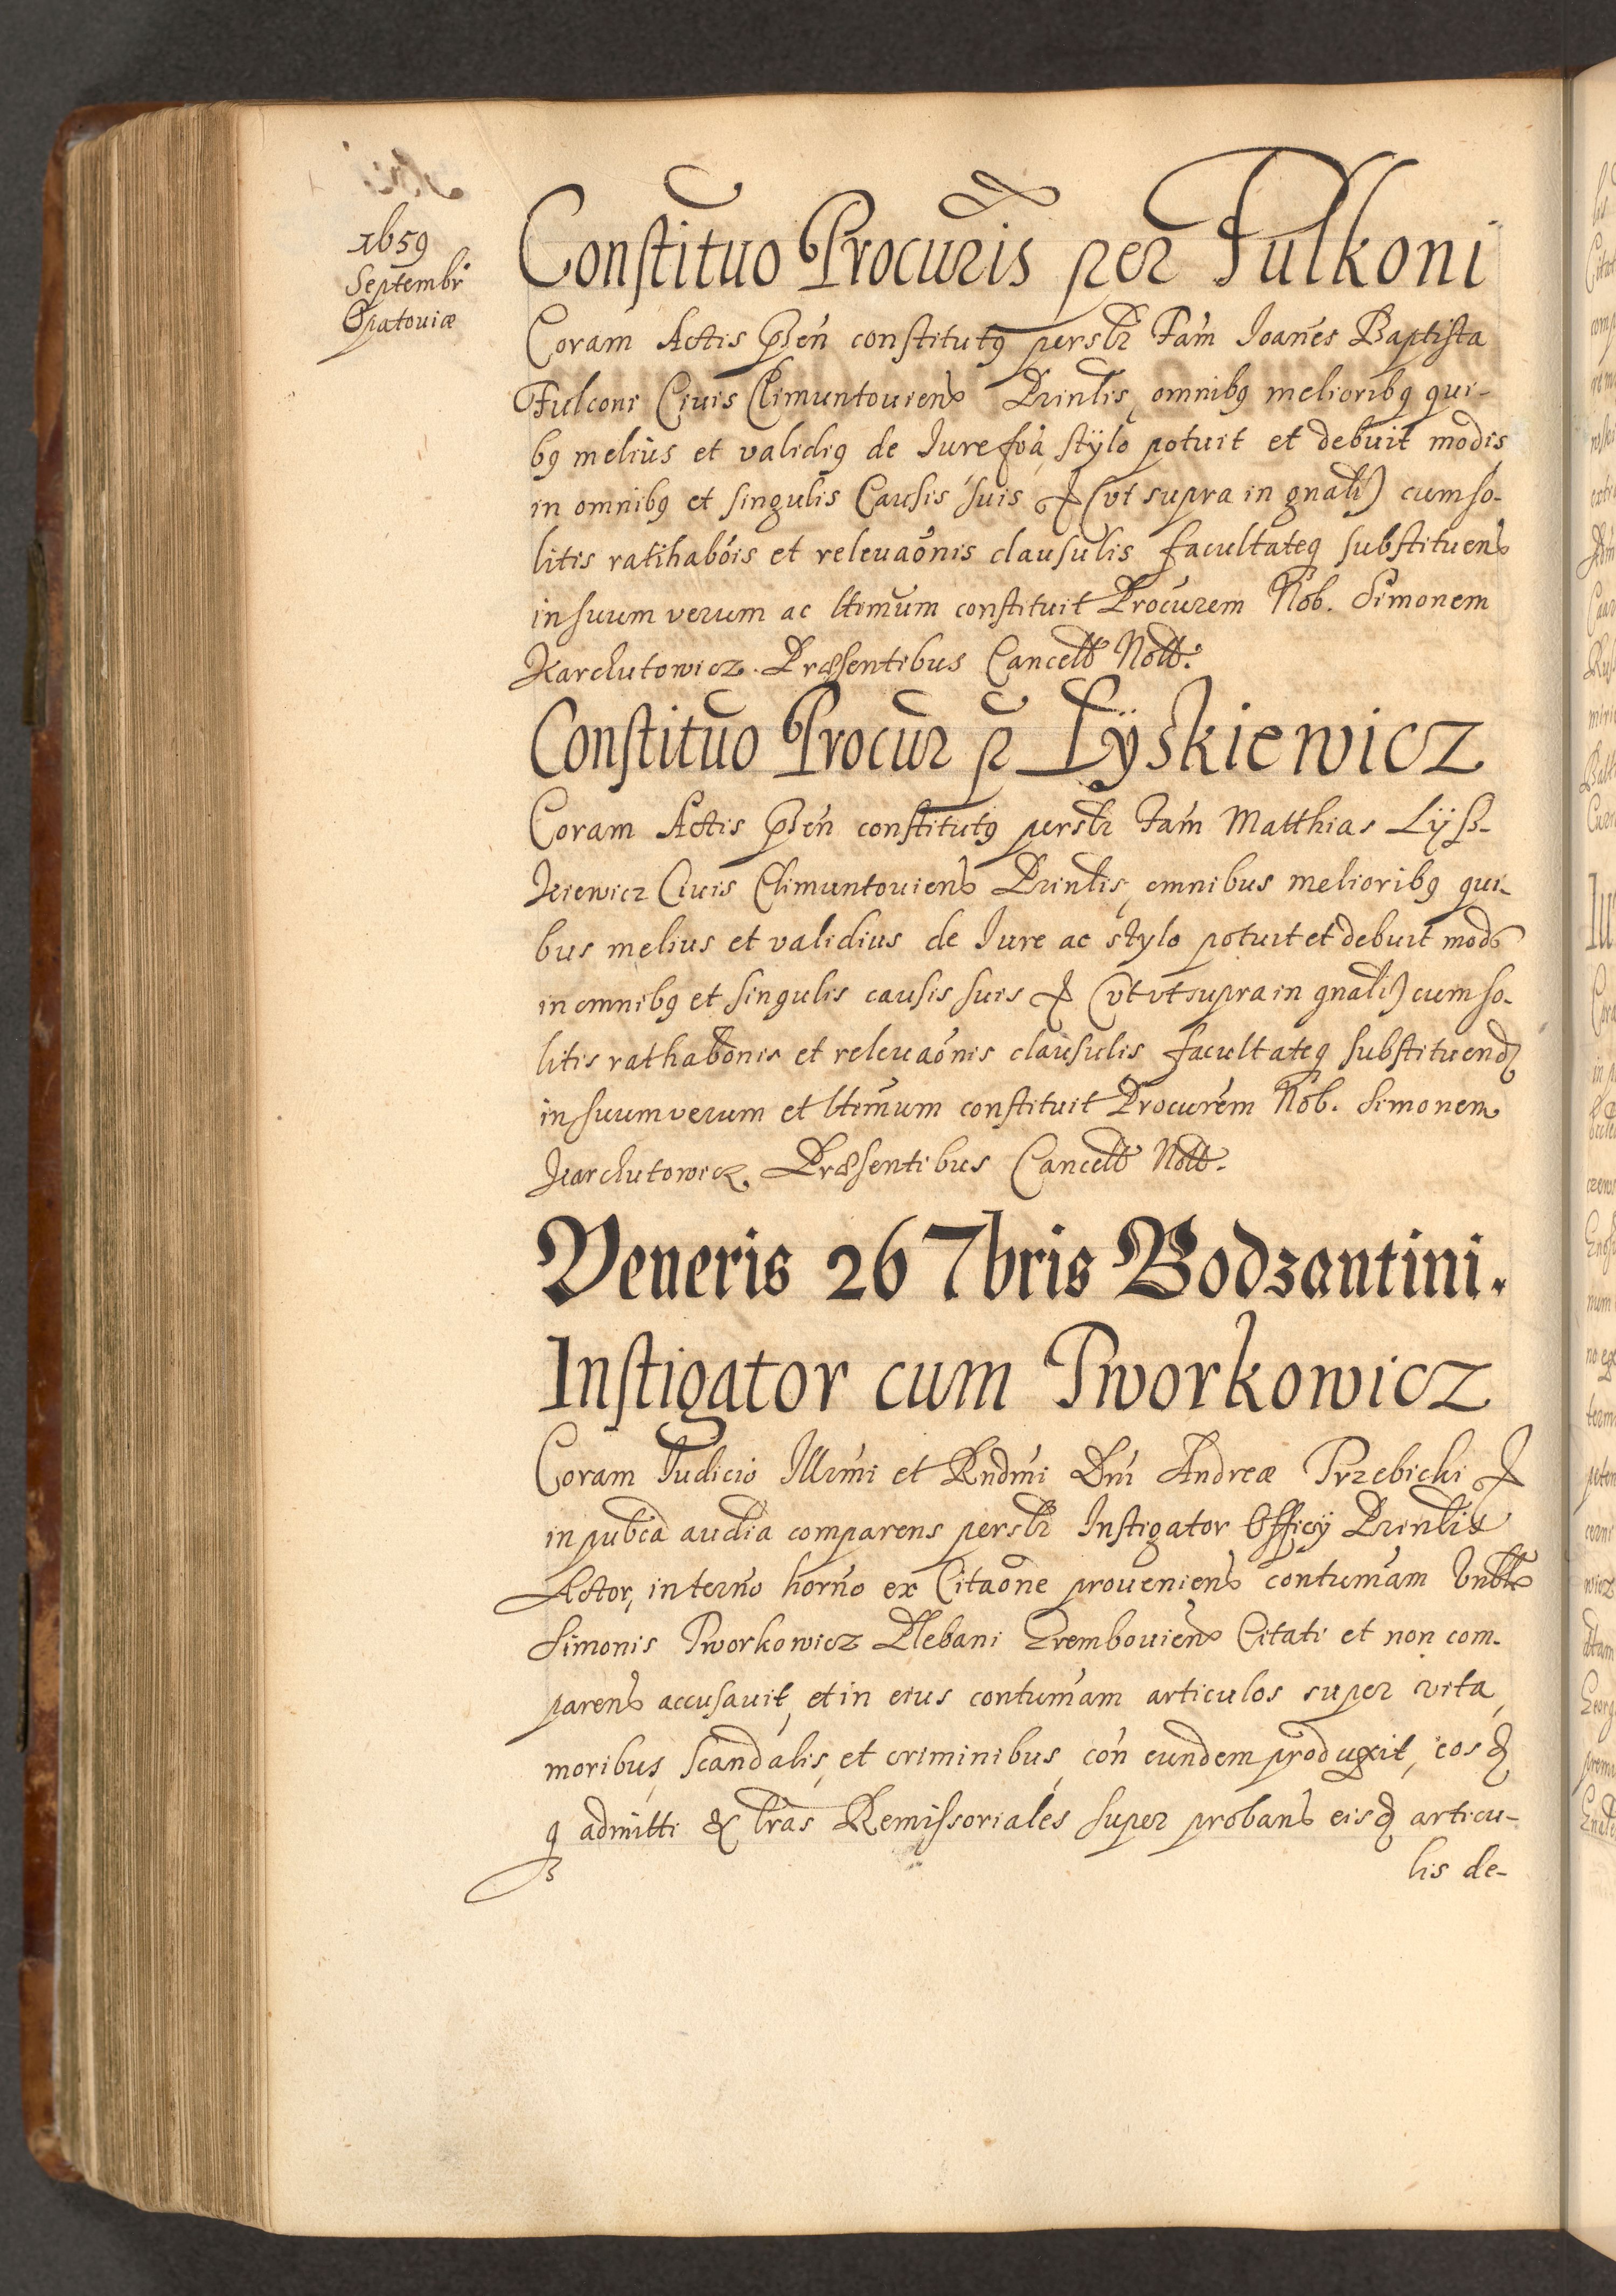 1659
Septembr
Opatouiæ
Constituo Procuris per Fulkoni
Coram Actis pñsen constitutq persłr Fam Ioanes Baptista
Fulconi Ciuis Climuntouiens Prinlis, omnibq melioribq qui-
bq melius et validiq de Iure foa stÿlo potuit et debuit modis
in omnibq et singulis Causis suis & (vt supra in gnali) cum so-
litis ratihabóis et releuaónis clausulis facultateq substituens
in suum verum ac ltimum constituit Procurem Nob. Simonem
Karchutowicz. Præsentibus Cancell Nott.
Constituo Procur p Lÿskiewicz
Coram Actis pñsen constitutq persłr Fam Matthias Lÿß-
kiewicz Ciuis Climuntouiens Prinlis, omnibus melioribq qui-
bus melius et validius de Iure ac stylo potuit et debuit mod
in omnibq et singulis causis suis & (vt vt supra in gnali) cum so-
litis rathabonis et releuaónis clausulis facultateq substituend
in suum verum et ltimum constituit Procurem Nob. Simonem
Karchutowicz. Præsentibus Cancell Nott.
Veneris 26 7bris Bodzantini.
Instigator cum Tworkowicz
Coram Iudicio Illrmi et Rndmi Dni Andreæ Trzebicki &
in pubca audia comparens persłr Instigator Officÿ Prinlis
Actor, in terno horno ex Citaone proueniens contumam
Simonis Tworkowicz Plebani Trembouiens Citati et non com-
parens accusauit, et in eius contumam articulos super vita,
moribus, scandalis, et criminibus, con eundem produxit, eos q
q admitti & lras Remissoriales super probans eisq articu-
lis de-